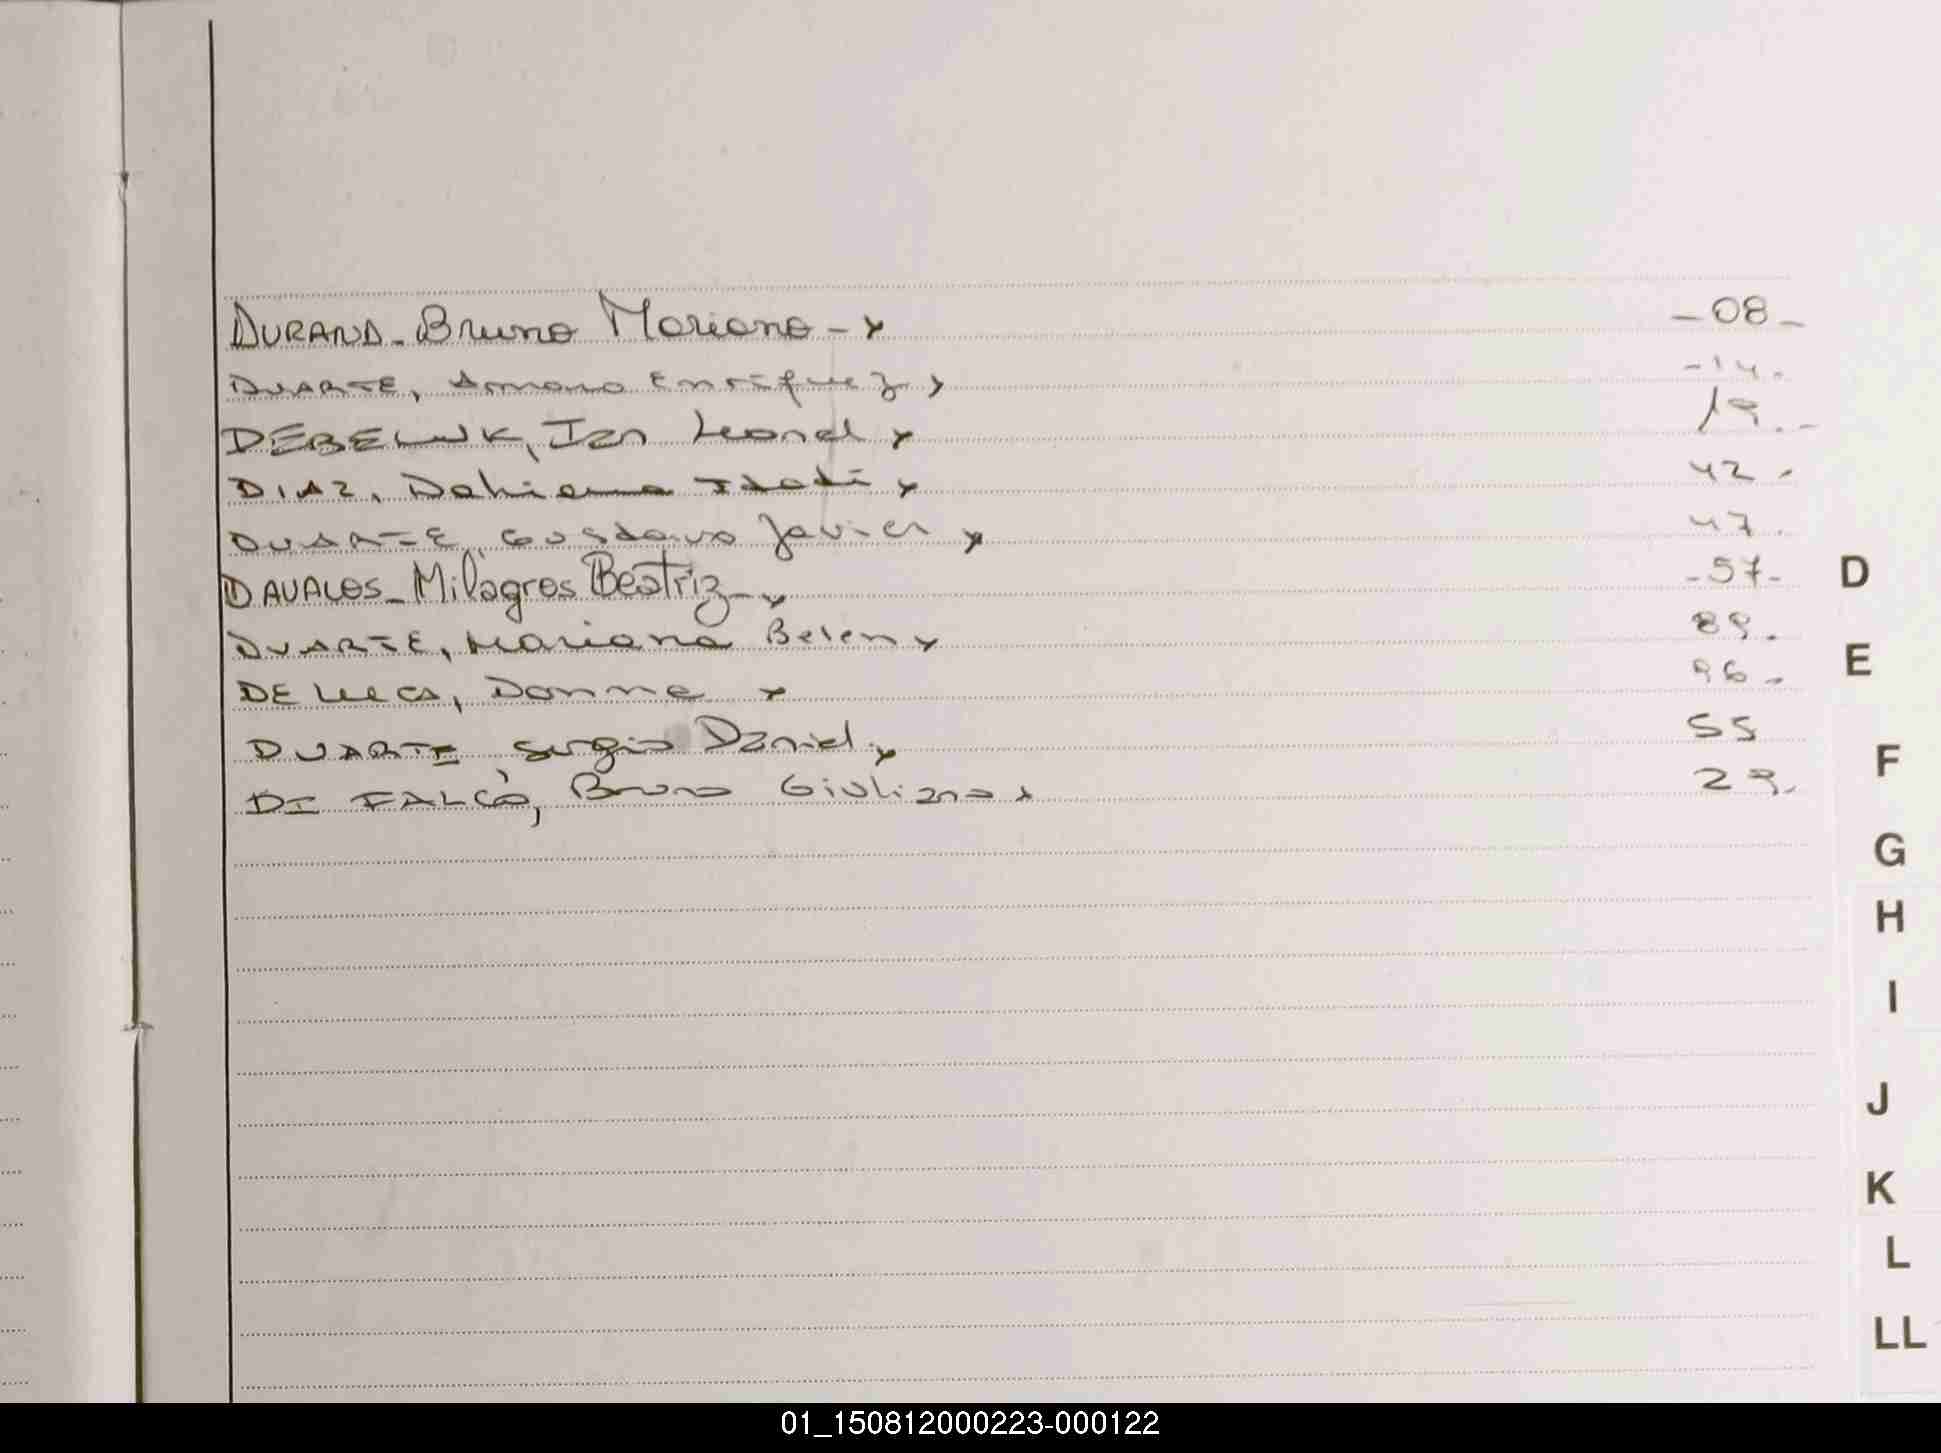 DURAND - Bruno Mariano - x -08-
DUARTE, Amaro Enriquez x -14.
DEBELUK, Ian Leonel x 19.-
DIAZ, Dahiana x 42-
DUARTE, Gustavo Javier x 47.
DAVALOS - Milagros Beatriz - x -57-
DUARTE, Mariana Belen x 89.
DE LUCA, x 96-
DUARTE Sergio Daniel x 55
DI FALCÒ, Bruno Giuliano x 29.
D
E
F
G
H
I
J
K
L
LL
01_150812000223-000122